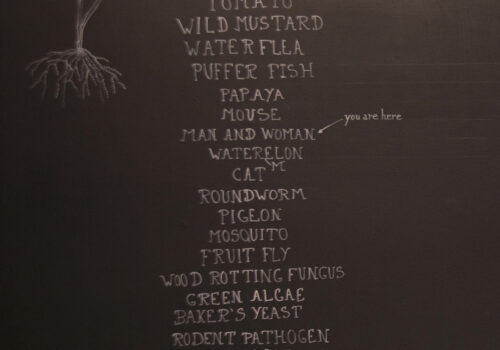 TOMATO
WILD MUSTARD
WATER FLEA
PUFFER FISH
PAPAYA
MOUSE
MAN AND WOMAN
you are here
WATERELON
M
CAT
ROUNDWORM
PIGEON
MOSQUITO
FRUIT FLY
WOOD ROTTING FUNGUS
GREEN ALGAE
BAKER'S YEAST
RODENT PATHOGEN